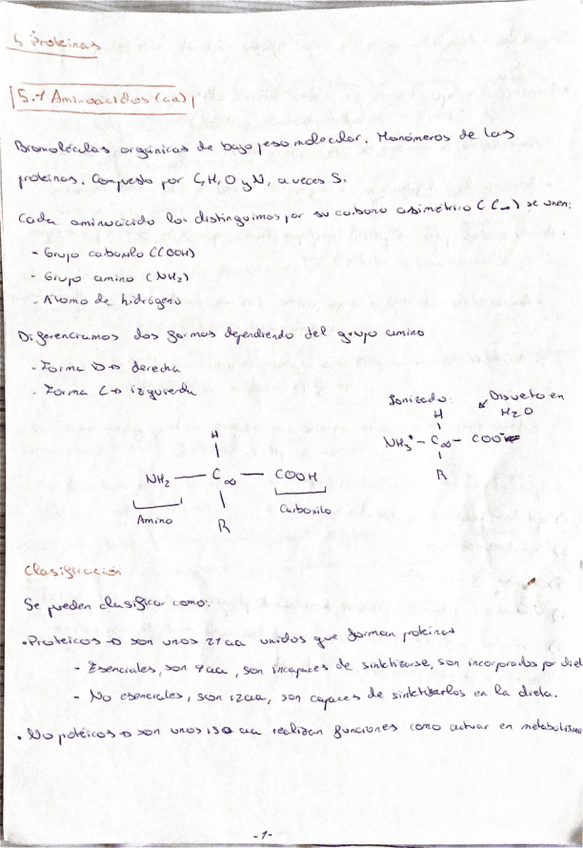 5 Proteinas
5.1 Aminoacidos (aa)
Biomoléculas orgánicas de bajo peso molecular. Monómeros de las
proteinas. Compuesto por C, H, O y N, a veces S.
Cada aminoácido los distinguimos por su carbono asimétrico (C∞) se unen:
- Grupo carboxilo (COOH)
- Grupo amino (NH₂)
- Atomo de hidrógeno
Diferenciamos dos formas dependiendo del grupo amino
- Forma D → derecha
- Forma L → izquierda
Ionizado: Disuelto en
H₂O
H
NH₃⁺ – C∞ – COO
R
H
NH₂ — C∞ — COOH
Amino R Carboxilo
Clasificación
Se pueden clasificar como:
• Proteicos → son unos 21 aa unidos que forman proteinas
- Esenciales, son 9 aa, son incapaces de sintetizarse, son incorporados por diet
- No esenciales, son 12 aa, son capaces de sintetizarlos en la dieta.
• No protéicos → son unos 150 aa realizan funciones como actuar en metabolismo
-1-